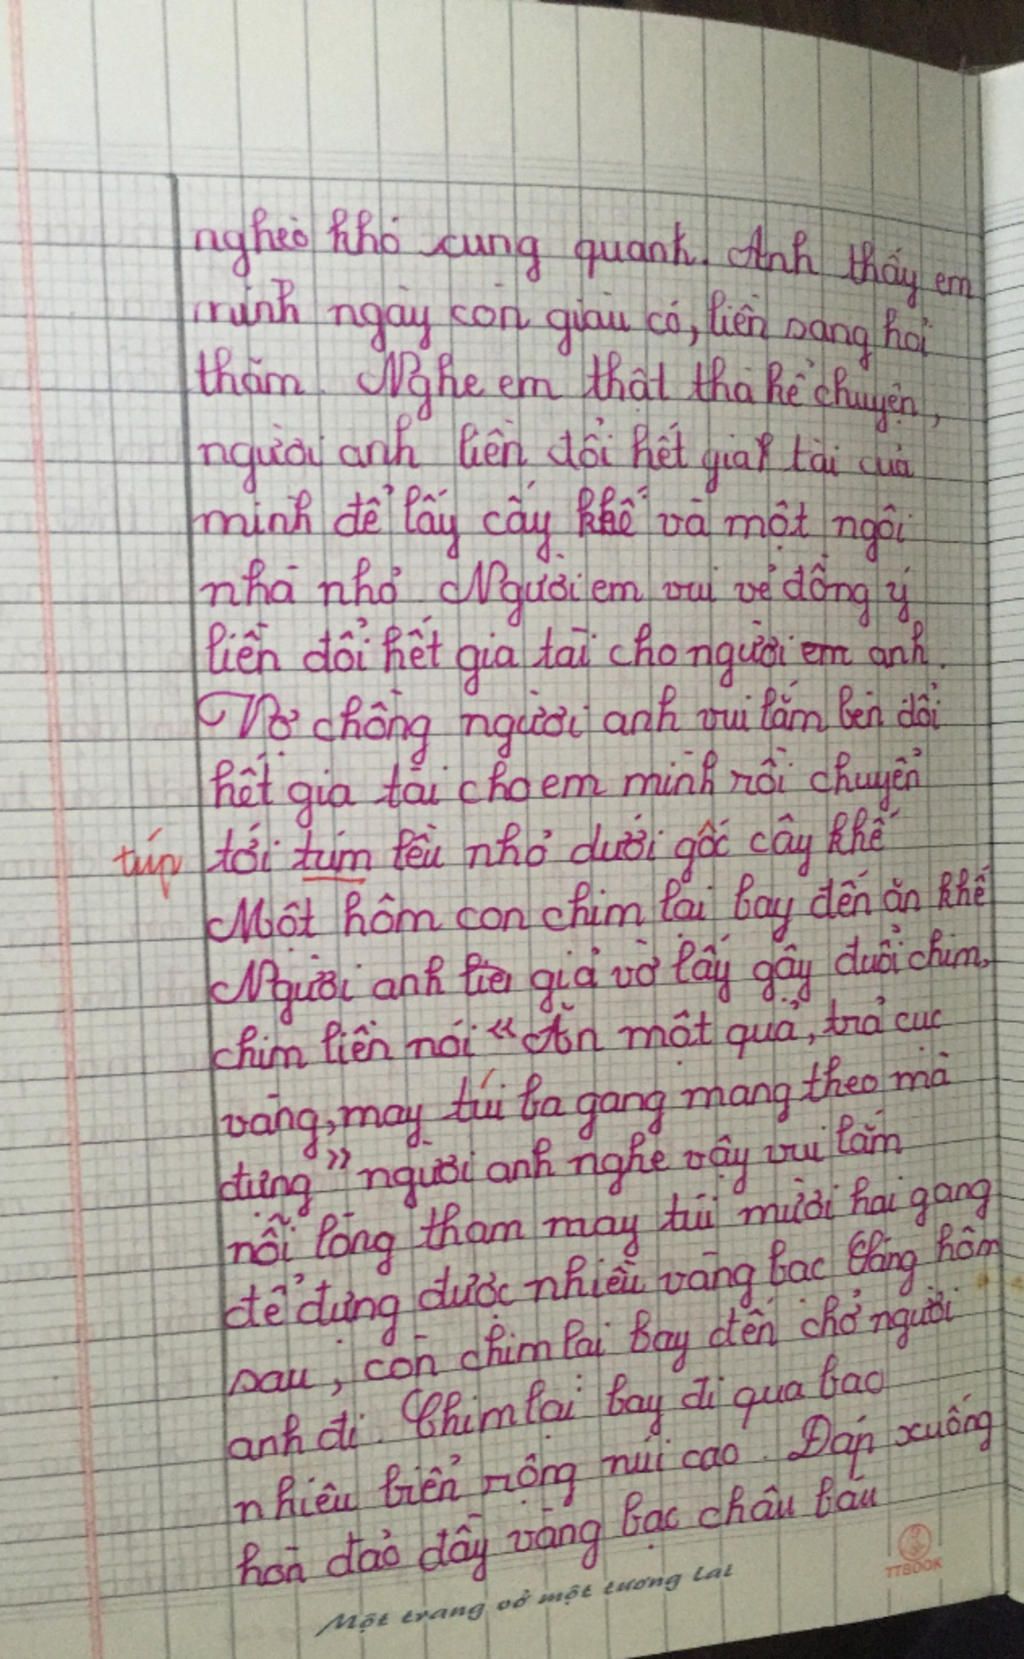 nghèo khó xung quanh. Anh thấy em
mình ngày còn giàu có, liền sang hỏi
thăm. Nghe em thật thà kể chuyện,
người anh liền đổi hết gia tài của
mình để lấy cây khế và một ngôi
nhà nhỏ Người em vui vẻ đồng ý
liền đổi hết gia tài cho người em anh.
Vợ chồng người anh vui lắm bèn đổi
hết gia tài cho em mình rồi chuyển
túp tới túm lều nhỏ dưới gốc cây khế
Một hôm con chim lại bay đến ăn khế
Người anh giả vờ lấy gậy đuổi chim,
chim liền nói "Ăn một quả, trả cục
vàng, may túi ba gang mang theo mà
đựng" người anh nghe vậy vui lắm
nỗi lòng tham may túi mười hai gang
để đựng được nhiều vàng bạc Sáng hôm
sau, con chim lại bay đến chở người
anh đi. Chim lại bay đi qua bao
nhiêu biển rộng núi cao. Đáp xuống
hòn đảo đầy vàng bạc châu báu
Một trang vở một tương lai
TTBOOK